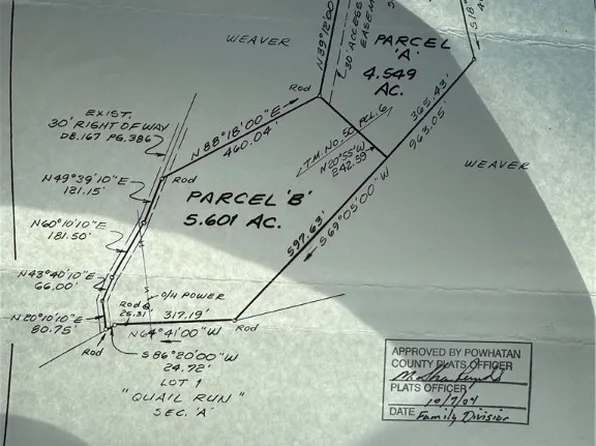 WEAVER
N39°12'00"
30' ACCESS
EASEM
PARCEL
'A'
4.549
AC.
S18°
EXIST.
30' RIGHT OF WAY
DB.167 PG.386
Rod
N88°18'00"E
460.04'
T.M. No. 50 PCL. 6
N20°55'W
242.59'
365.43'
963.05'
WEAVER
N49°39'10"E
121.15'
Rod
PARCEL 'B'
5.601 AC.
N60°10'10"E
181.50'
597.63'
S69°05'00"W
N43°40'10"E
66.00'
O/H POWER
N20°10'10"E
80.75'
Rod @
26.31
317.19'
N64°41'00"W
Rod
Rod
S86°20'00"W
24.72'
LOT 1
"QUAIL RUN"
SEC. 'A'
APPROVED BY POWHATAN
COUNTY PLATS OFFICER
PLATS OFFICER
10/7/04
DATE Family Division